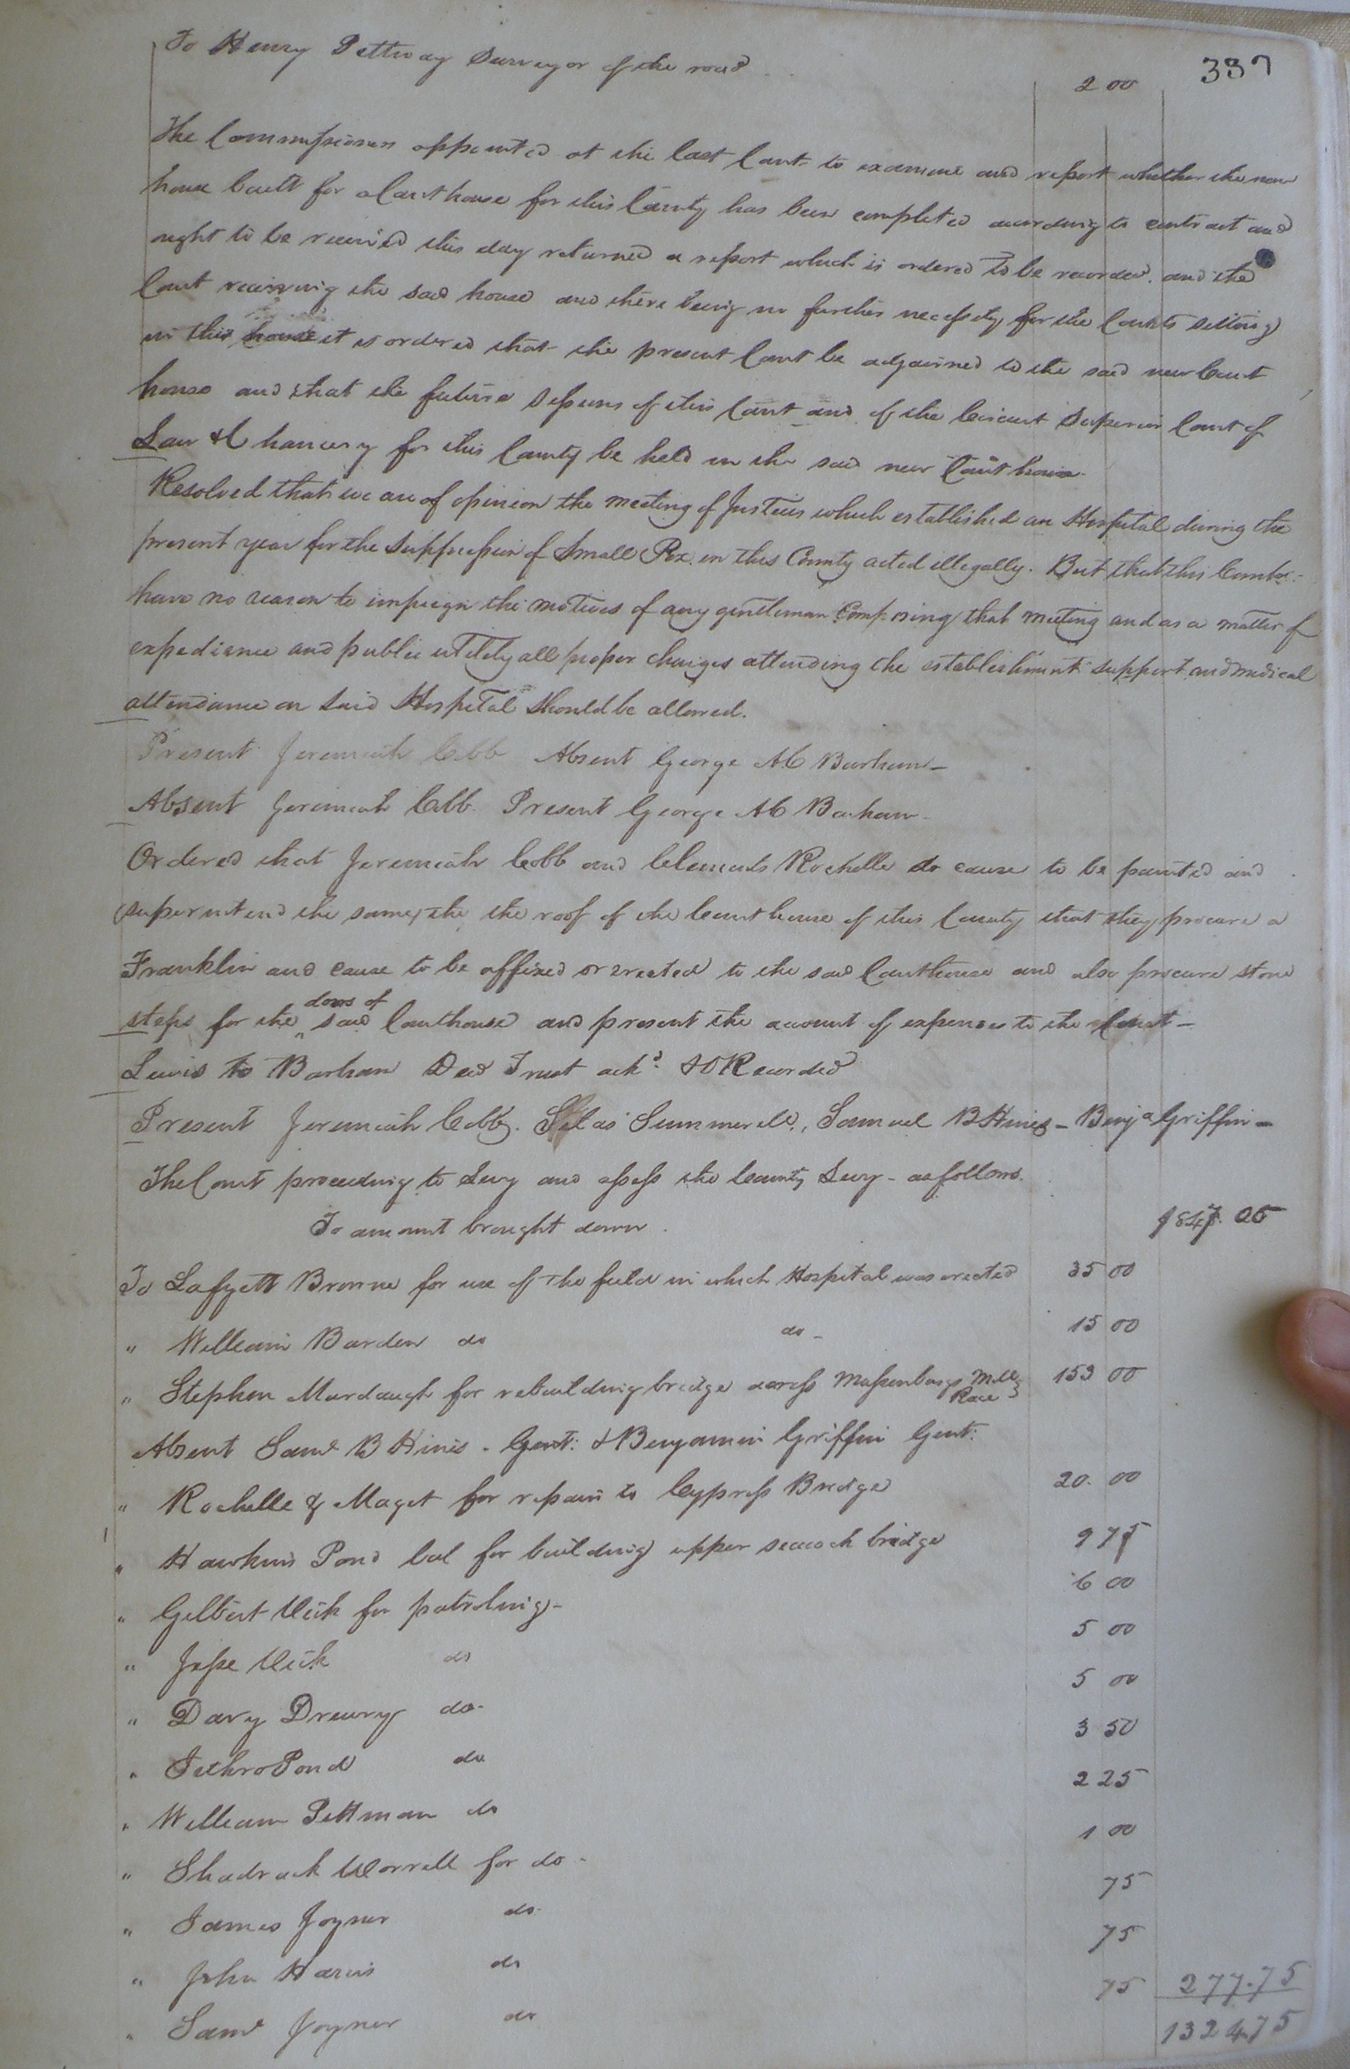 337
To Henry Pettway Surveyor of the road 2 00
The Commissioners appointed at the last Court to examine and report whether the new
house built for a Courthouse for this County has been completed according to contract and
ought to be received this day returned a report which is ordered to be recorded. and the
Court receiving the said house and there being no further necessity for the Courts sitting
in this house it is ordered that the present Court be adjourned to the said new Court
house and that the future Sessions of this Court and of the Circuit Superior Court of
Law & Chancery for this County be held in the said new Courthouse.
Resolved that we are of opinion the meeting of Justices which established an Hospital during the
present year for the suppression of Small Pox in this County acted illegally. But that this Court
have no reason to impugn the motives of any gentleman composing that meeting and as a matter of
expedience and public utility all proper charges attending the establishment support and medical
attendance on said Hospital should be allowed.
Present Jeremiah Cobb Absent George AC Barham
Absent Jeremiah Cobb. Present George AC Barham
Ordered that Jeremiah Cobb and Clements Rochelle do cause to be painted and
superintend the same, the the roof of the Courthouse of this County that they procure a
Franklin and cause to be affixed or erected to the said Courthouse and also procure stone
steps for the doors of said Courthouse and present the account of expenses to the Court-
Lewis to Barham Deed Trust ackd. & O Recorded
Present Jeremiah Cobb. Silas Summerell, Samuel B Hines - Benja Griffin -
The Court proceeding to Levy and assess the County Levy - as follows.
To amount brought down.
To Lafyett Browne for use of the field in which Hospital was erected 35 00
" William Barden do do - 15 00
" Stephen Murdaugh for rebuilding bridge across Massenburgs Mill Race 153 00
Absent Saml B Hines - Gent: & Benjamin Griffin Gent:
" Rochelle & Maget for repairs to Cypress Bridge 20. 00
" Hawkins Pond bal for building upper seacock bridge 9 75
" Gilbert Vick for patroling - 6 00
" Jesse Vick do 5 00
" Davy Drewry do 5 00
" Jethro Pond do 3 50
" William Pittman do 2 25
" Shadrack Worrell for do - 1 00
" James Joyner do 75
" John Haris do 75
" Saml Joyner do 75 277.75
1324.75